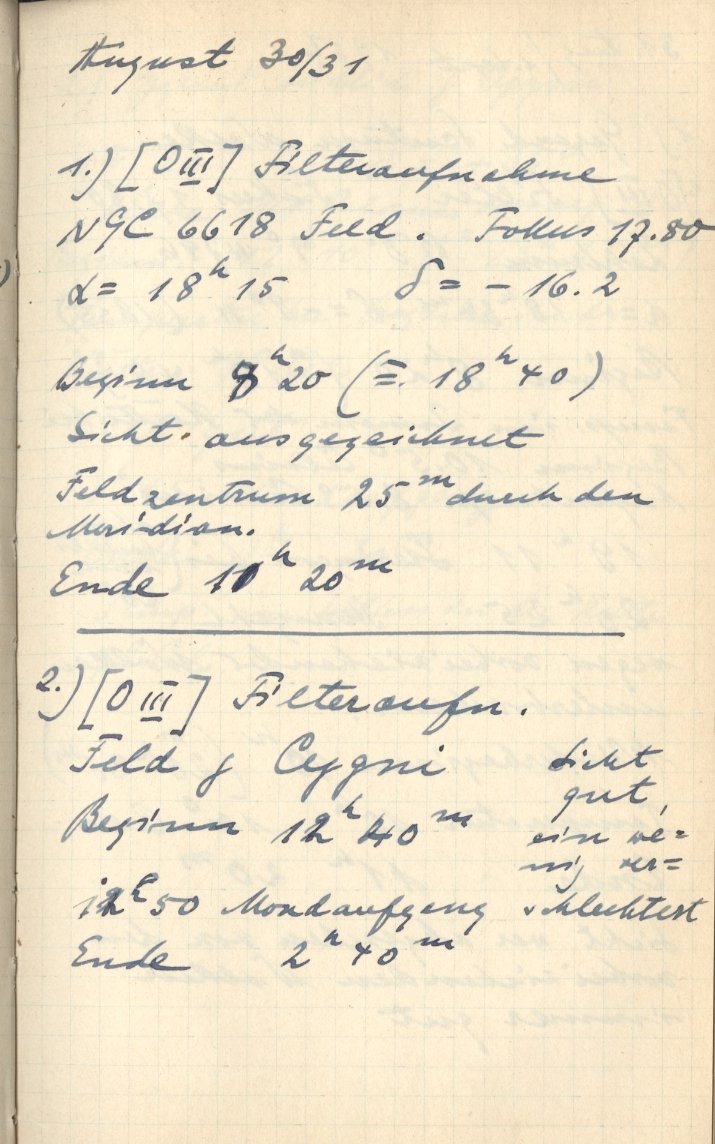 August 30/31
1.) [O III] Filteraufnahme
NGC 6618 Feld. Fokus 17.80
α = 18ʰ 15 δ = - 16.2
Beginn 8ʰ20 (=. 18ʰ40)
Sicht. ausgezeichnet
Feldzentrum 25ᵐ durch den
Meridian.
Ende 10ʰ 20ᵐ
2.) [O III] Filteraufn.
Feld γ Cygni
Beginn 12ʰ 40ᵐ
12ʰ50 Mondaufgang
Ende 2ʰ 40ᵐ
Sicht
gut,
ein we=
nig ver=
schlechtert